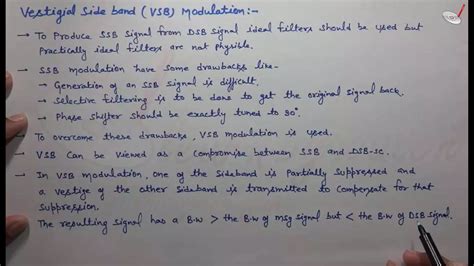 Vestigial Side band (VSB) Modulation:-
→ To Produce SSB Signal from DSB signal ideal filters should be used but
Practically ideal filters are not physible.
→ SSB modulation have some drawbacks like-
→ Generation of an SSB signal is difficult.
→ Selective filtering is to be done to get the original signal back.
→ Phase shifter should be exactly tuned to 90°.
→ To overcome these drawbacks, VSB modulation is used.
→ VSB Can be viewed as a compromise between SSB and DSB-SC.
→ In VSB modulation, one of the Sideband is Partially suppressed and
a vestige of the other Sideband is transmitted to compensate for that
suppression.
The resulting signal has a B.W > the B.W of msg signal but < the B.W of DSB signal.